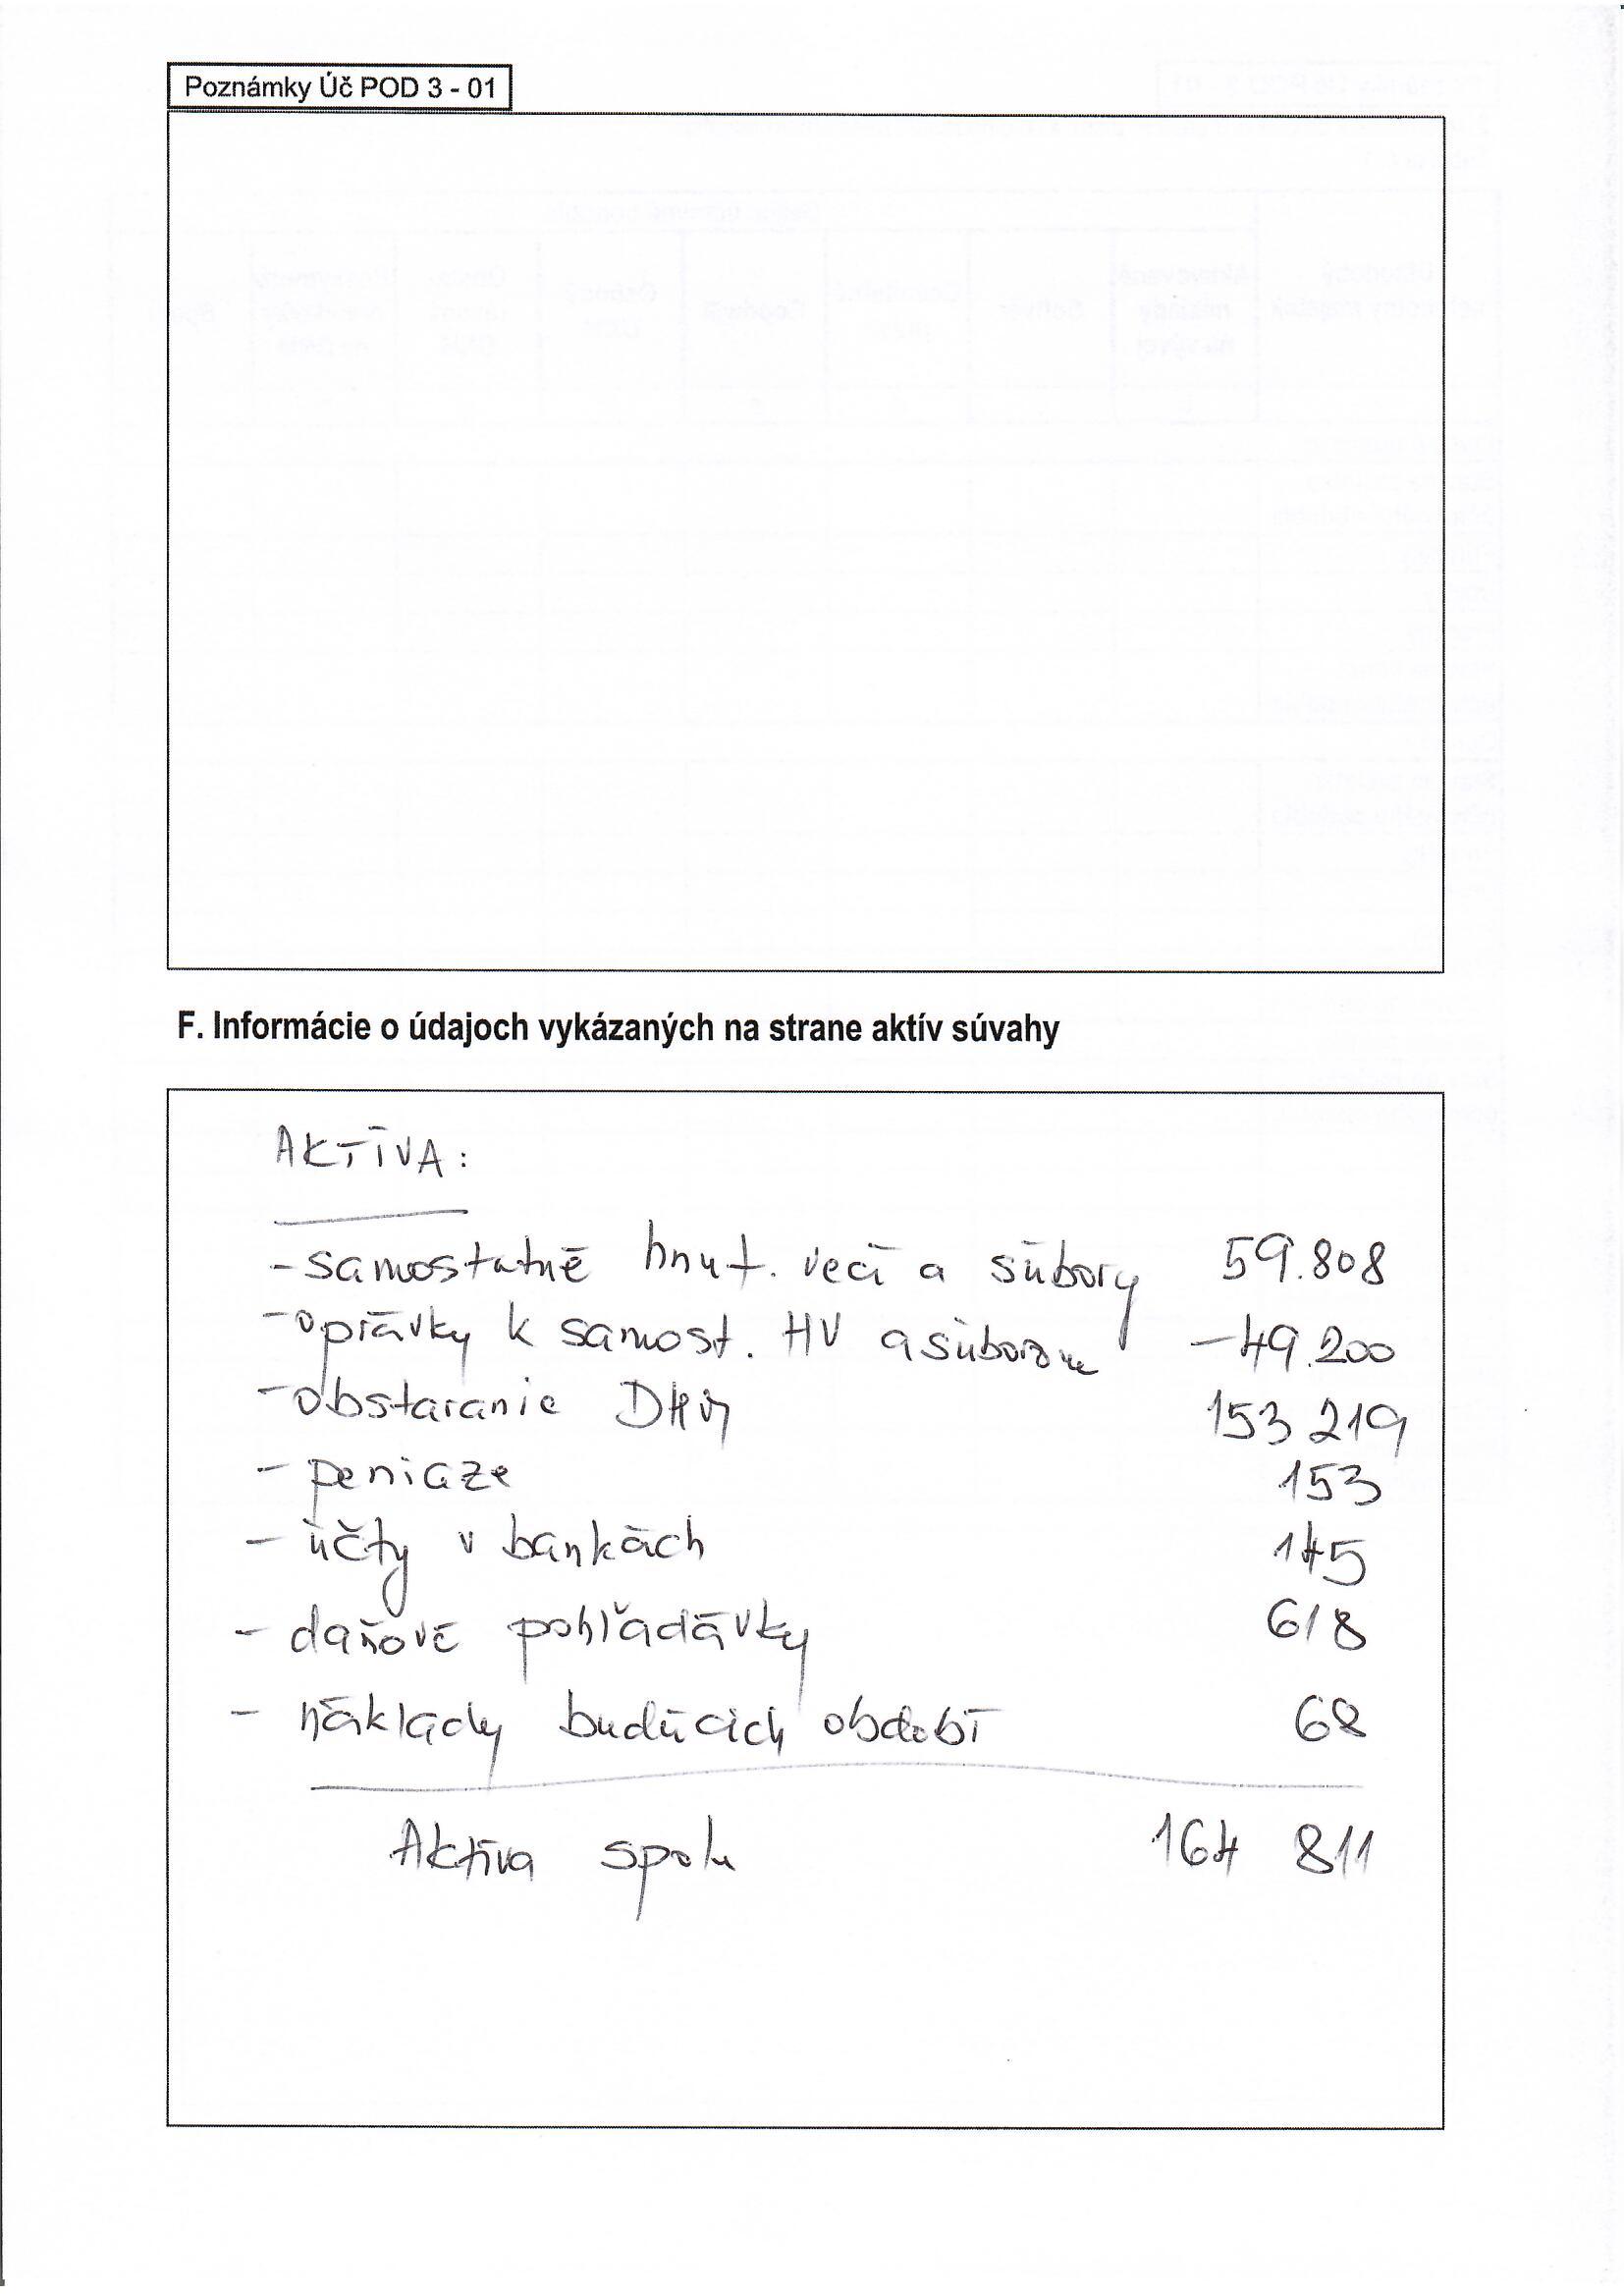 Poznámky Úč POD 3 - 01
F. Informácie o údajoch vykázaných na strane aktív súvahy
AKTÍVA:
- samostatné hnut. veci a súbory 59.808
- oprávky k samost. HV a súborom - 49.200
- obstaranie DHM 153 219
- peniaze 153
- účty v bankách 145
- daňové pohľadávky 618
- náklady budúcich období 68
Aktíva spolu 164 811